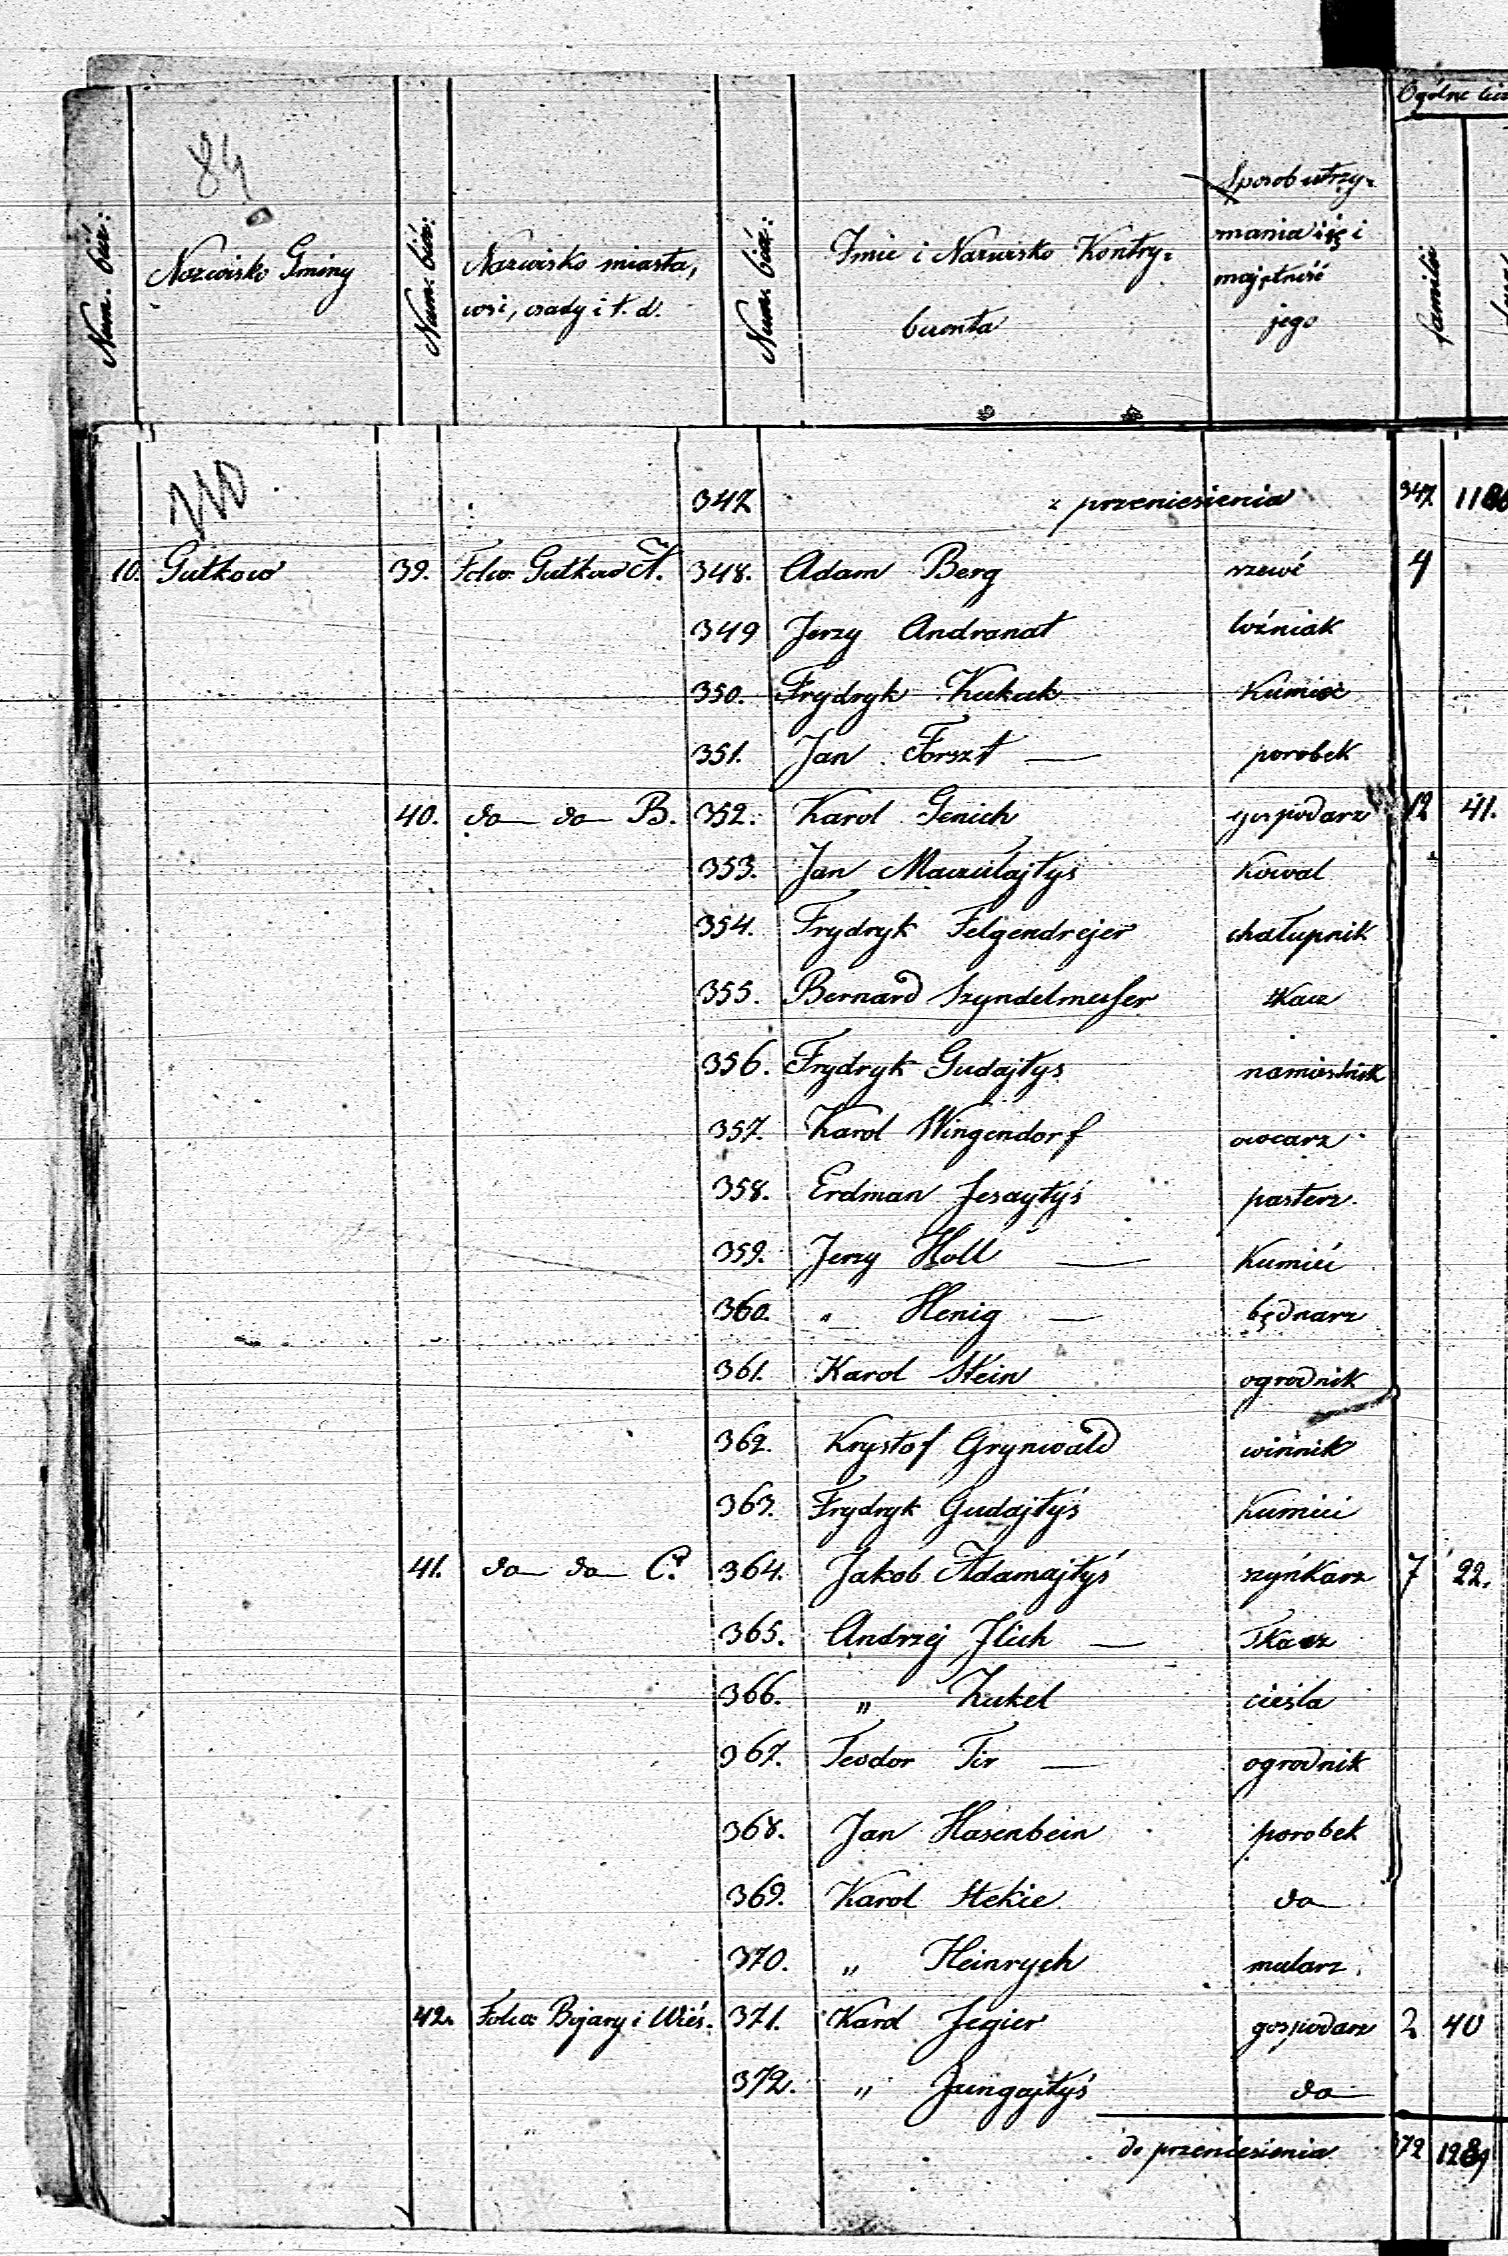 84
Ogólne licz
Num. bież: Nazwisko Gminy Num: bież: Nazwisko miasta, wsi, osady i t. d. Num: bież: Imie i Nazwisko Kontry= buenta Sposob utrzy= mania się i majętność jego familii
110
347 z przeniesienia 347. 1180
10. Gutkow 39. Folw. Gutkow A. 348. Adam Berg rzewć 4
349 Jerzy Andranat woźniak
350. Frydryk Kukuk Kumieć
351. Jan Forszt — porobek
40. do do B. 352. Karol Genich gospodarz 12 41.
353. Jan Maczulajtys Kowal
354. Frydryk Felgendrejer chałupnik
355. Bernard Szyndelmeiser tkacz
356. Frydryk Gudajtys namiestnik
357. Karol Wingendorf owcarz
358. Erdman Jesaytyś pasterz.
359. Jerzy Holl — Kumieć
360. " Henig — będnarz
361. Karol Stein ogrodnik
362. Krystof Grynwald winnik
363. Frydryk Gudajtyś Kumieć
41. do do C. 364. Jakob Adamajtyś szynkarz 7 22.
365. Andrzej Ilich — Tkacz
366. " Kukel cieśla
367. Teodor Tir — ogrodnik
368. Jan Hasenbein porobek
369. Karol Stekie do
370. " Heinrych mularz
42. Folw: Bojary i Wieś. 371. Karol Jegier gospodarz 2 40
372. " Jungajtyś do
do przeniesienia 372 1289